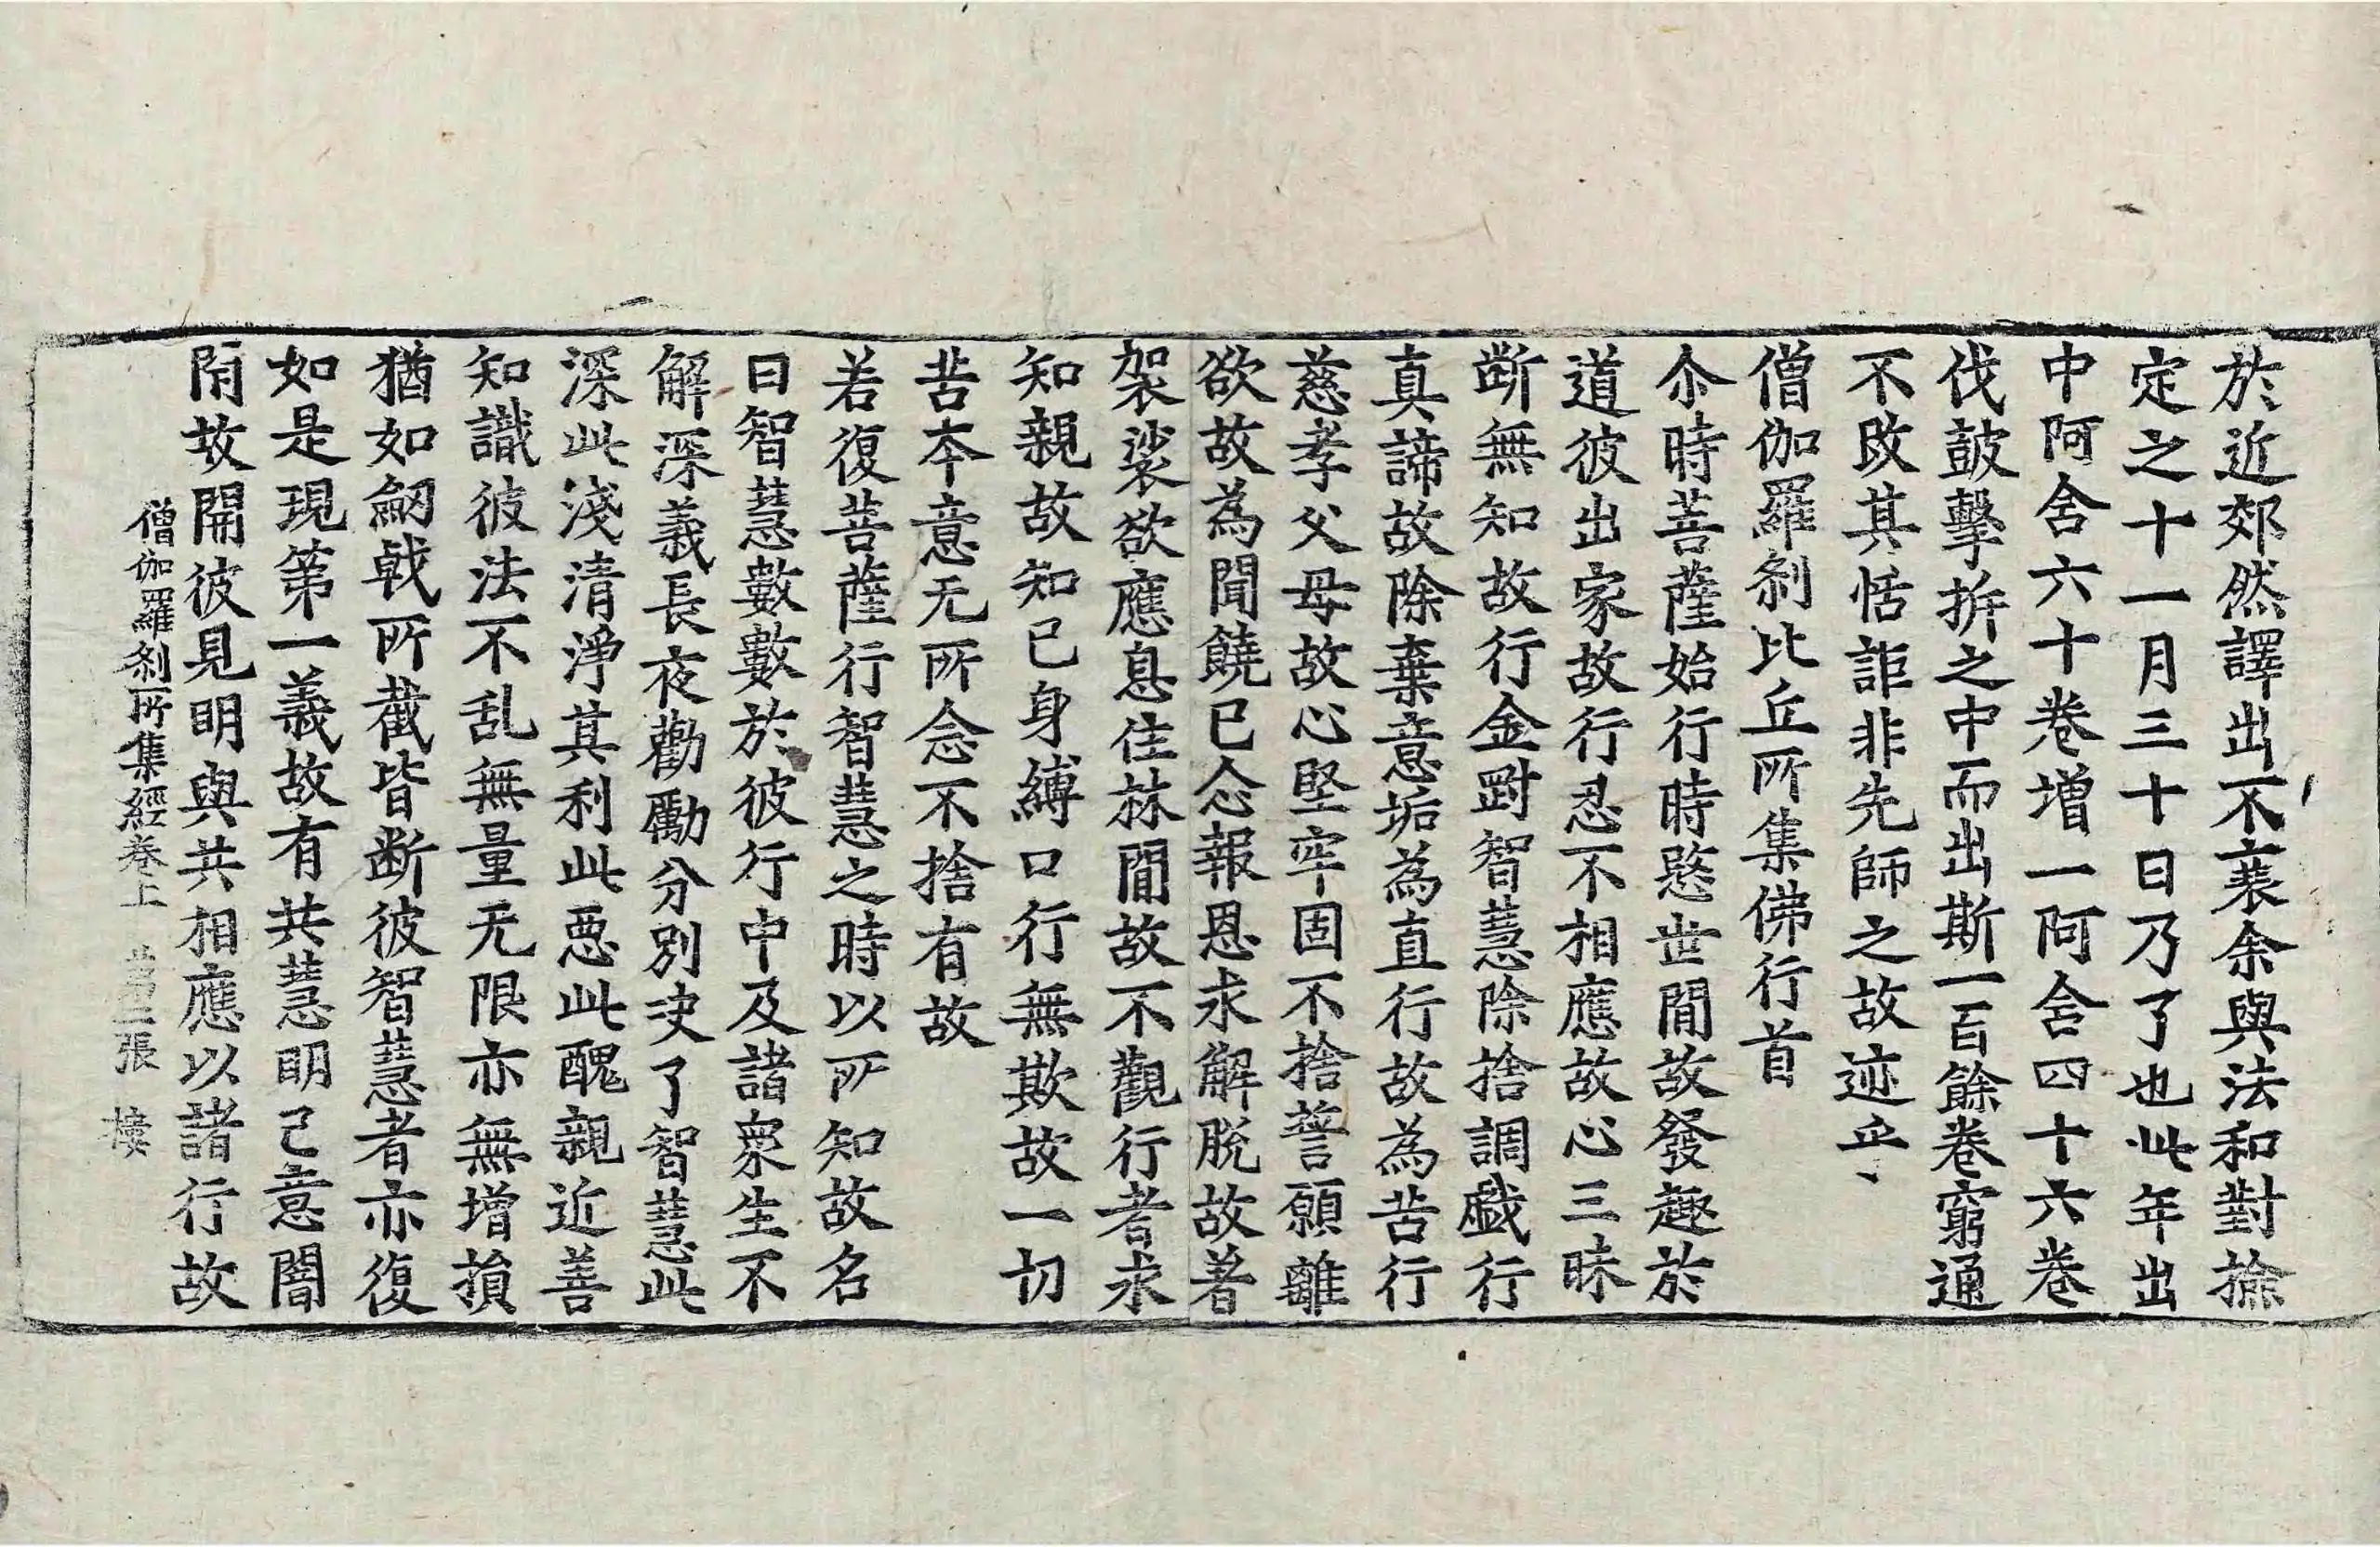 於近郊然譯出不襄余與法和對撿
定之十一月三十日乃了也此年出
中阿含六十卷增一阿含四十六卷
伐皷擊拆之中而出斯一百餘卷窮通
不改其恬詎非先師之故迹乎
僧伽羅剎比丘所集佛行首
尒時菩薩始行時愍世間故發趣於
道彼出家故行忍不相應故心三昧
断無知故行金對智慧除捨調戯行
真諦故除棄意垢為直行故為苦行
慈孝父母故心堅牢固不捨誓願離
欲故為聞饒已念報恩求解脫故著
袈裟欲應息住林間故不觀行者求
知親故知已身縛口行無欺故一切
苦本意无所念不捨有故
若復菩薩行智慧之時以所知故名
曰智慧數數於彼行中及諸衆生不
解深義長夜勸勵分別决了智慧此
深此淺清淨其利此惡此醜親近善
知識彼法不乱無量无限亦無增損
猶如劒戟所截皆断彼智慧者亦復
如是現第一義故有共慧明己意闇
閇故開彼見明與共相應以諸行故
僧伽羅剎所集經卷上 第三張 樓